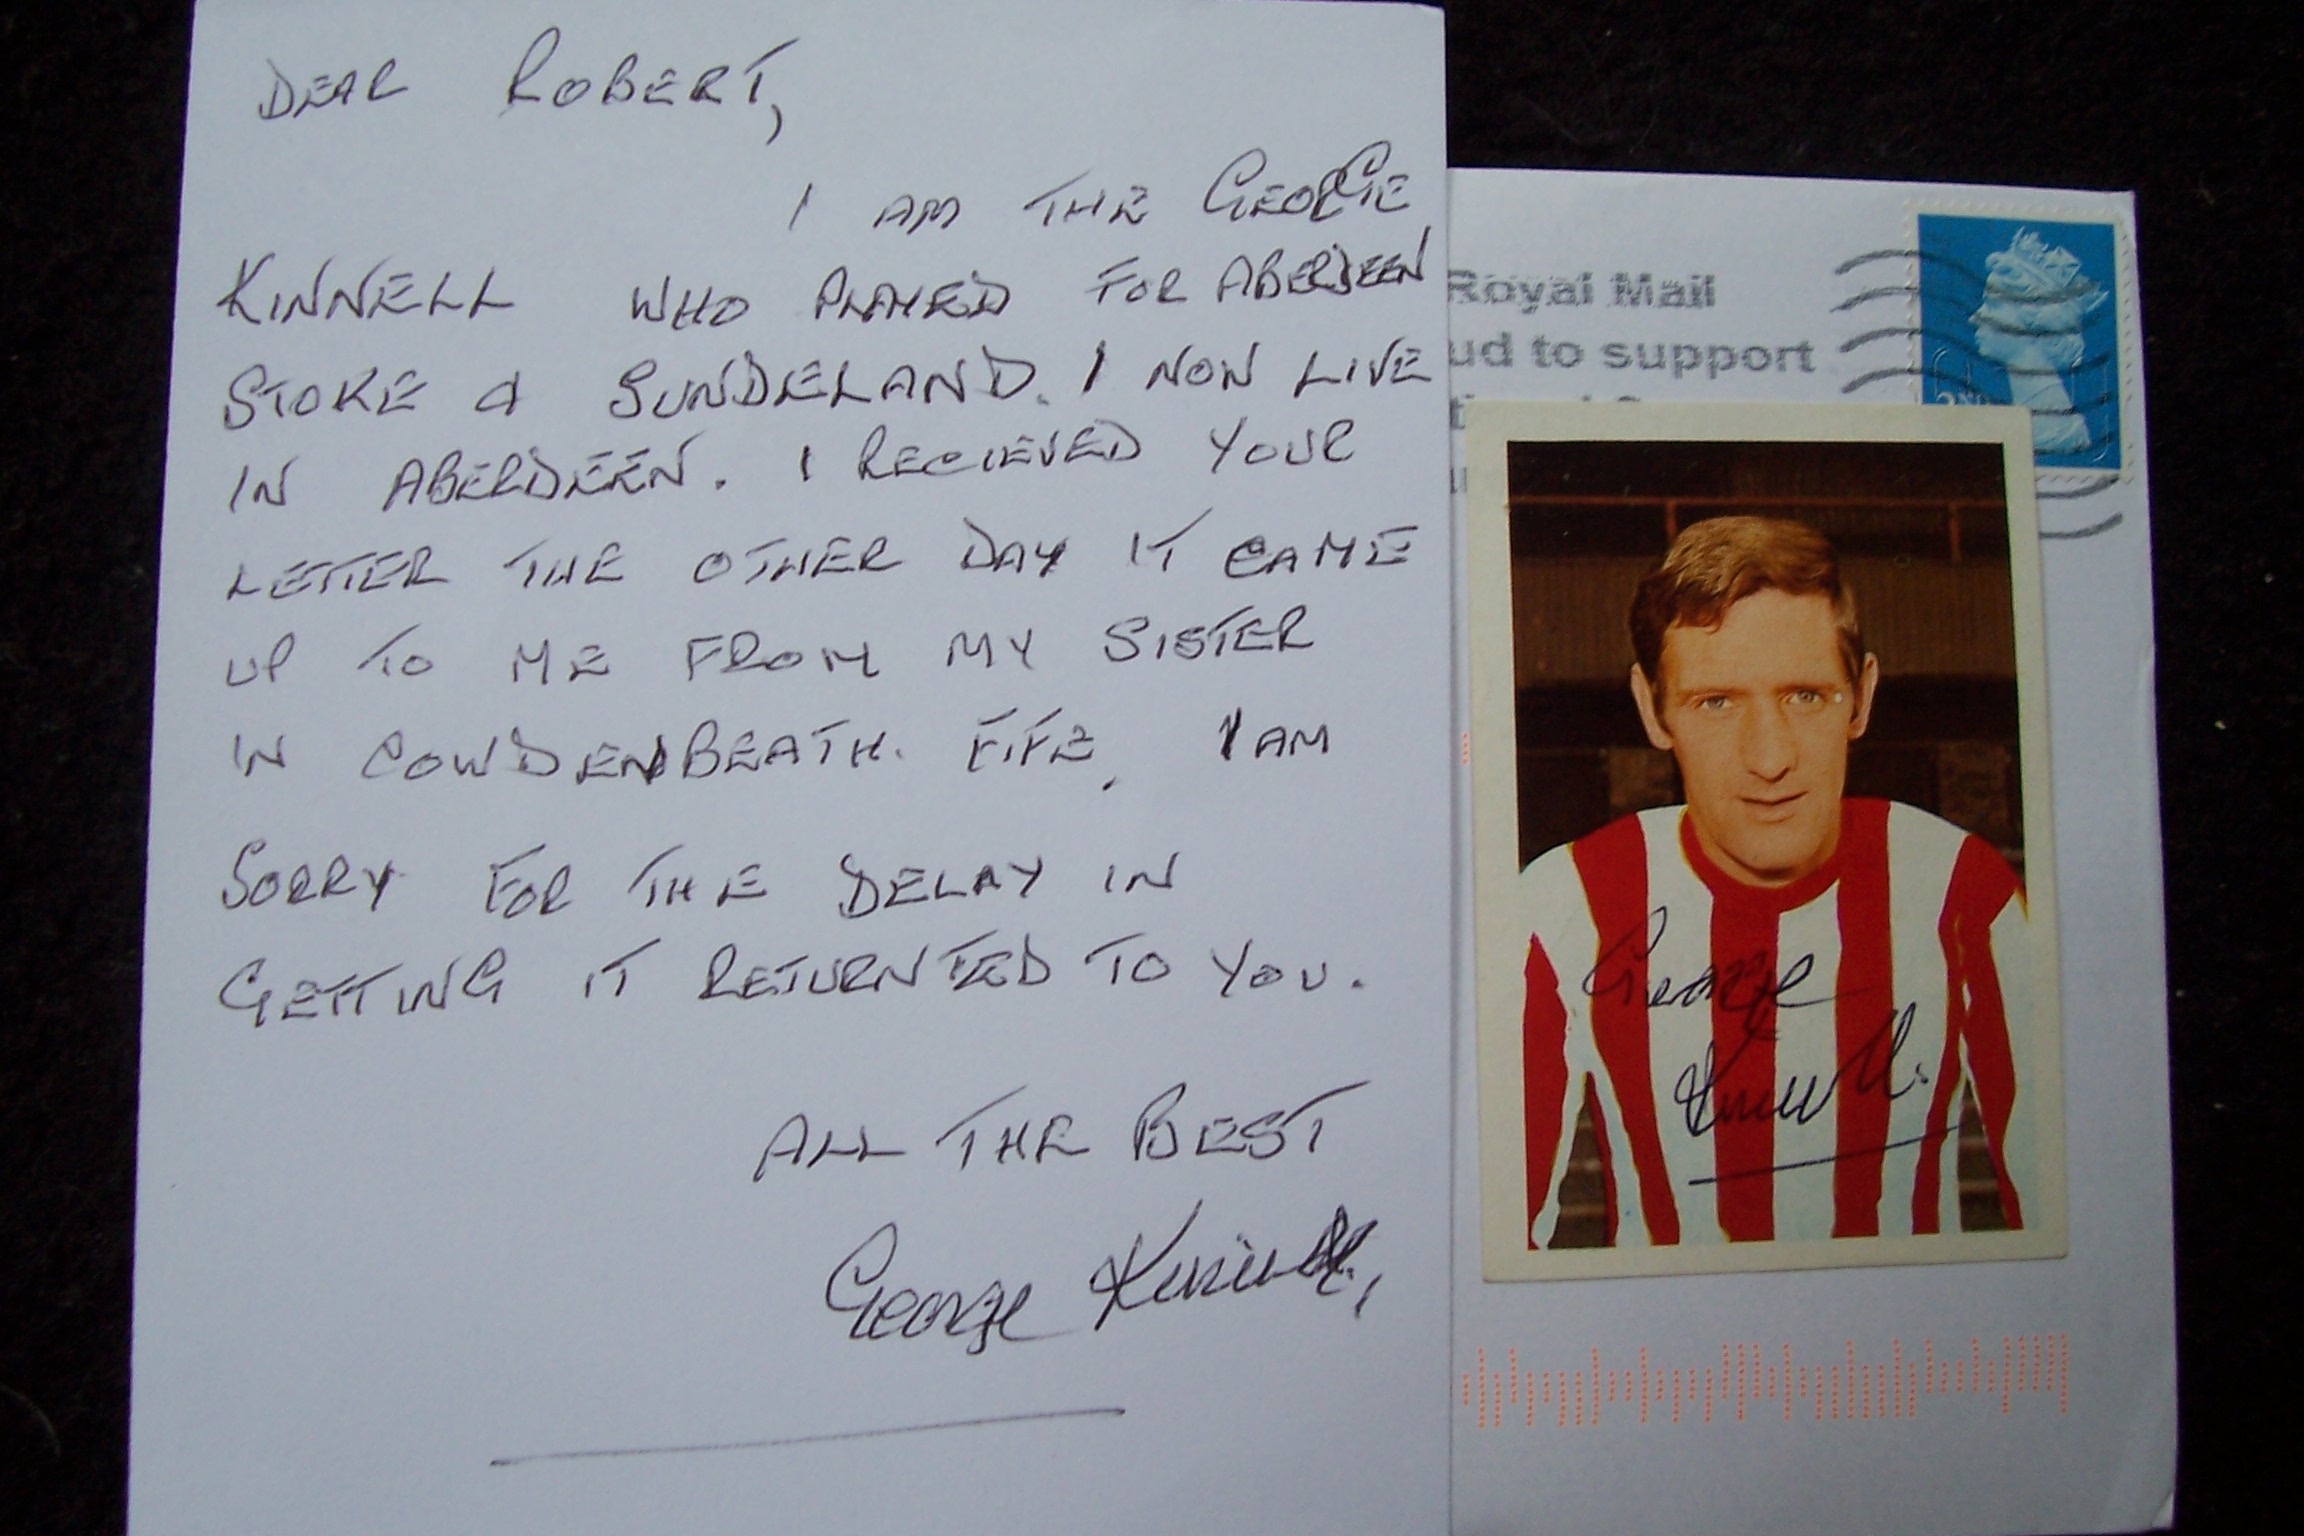 DEAR ROBERT,
I AM THE GEORGE
KINNELL WHO PLAYED FOR ABERDEEN
STOKE & SUNDERLAND. I NOW LIVE
IN ABERDEEN. I RECIEVED YOUR
LETTER THE OTHER DAY IT CAME
UP TO ME FROM MY SISTER
IN COWDENBEATH. FIFE, I AM
SORRY FOR THE DELAY IN
GETTING IT RETURNED TO YOU.
ALL THE BEST
George Kinnell,
Royal Mail
ud to support
2ND
George
Kinnell.